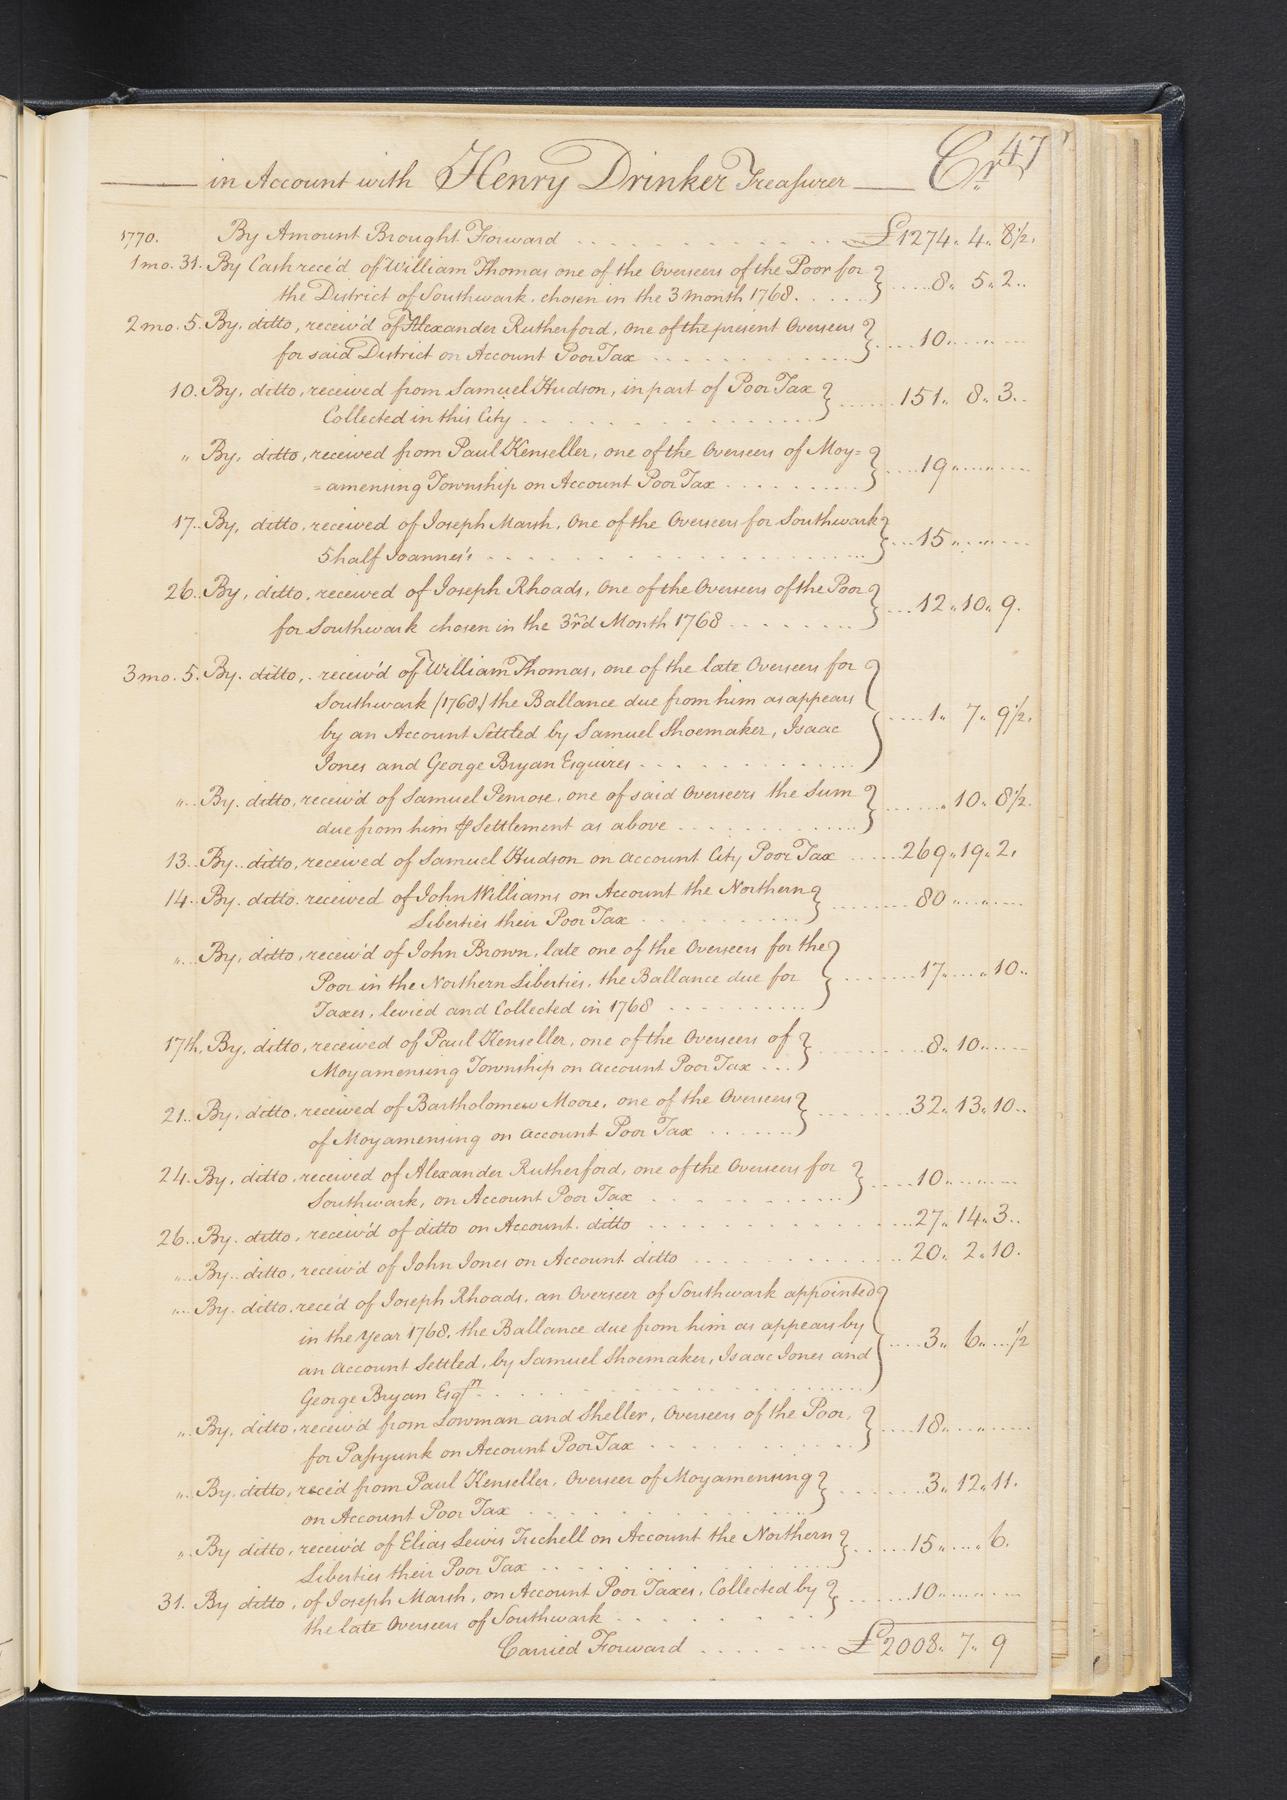 47
in Account with Henry Drinker Treasurer Cr.
1770. By Amount Brought Forward £1274.. 4.. 8½.
1 mo. 31. By Cash rece'd of William Thomas one of the Overseers of the Poor for
the District of Southwark, chosen in the 3 Month 1768. 8.. 5.. 2..
2 mo. 5. By, ditto, receiv'd of Alexander Rutherford, one of the present Overseers
for said District on Account Poor Tax 10..
10. By, ditto, received from Samuel Hudson, in part of Poor Tax
Collected in this City 151.. 8.. 3..
„ By, ditto, received from Paul Kenseller, one of the Overseers of Moy=
=amensing Township on Account Poor Tax 19..
17.. By, ditto, received of Joseph Marsh, One of the Overseers for Southwark
5 half Joannes's 15..
26.. By, ditto, received of Joseph Rhoads, One of the Overseers of the Poor
for Southwark chosen in the 3rd Month 1768 12.. 10.. 9.
3 mo. 5. By. ditto, receiv'd of William Thomas, one of the late Overseers for
Southwark (1768) the Ballance due from him as appears
by an Account Settled by Samuel Shoemaker, Isaac
Jones and George Bryan Esquires 1.. 7.. 9½.
„ By. ditto, receiv'd of Samuel Penrose, one of said Overseers the Sum
due from him ⅌ Settlement as above 10.. 8½.
13.. By.. ditto, received of Samuel Hudson on account City Poor Tax 269.. 19.. 2.
14.. By. ditto. received of John Williams on Account the Northern
Liberties their Poor Tax 80..
„ By, ditto, receiv'd of John Brown, late one of the Overseers for the
Poor in the Northern Liberties, the Ballance due for
Taxes, levied and Collected in 1768 17.. .. 10..
17th, By, ditto, received of Paul Kenseller, one of the Overseers of
Moyamensing Township on account Poor Tax 8.. 10..
21.. By, ditto, received of Bartholomew Moore, one of the Overseers
of Moyamensing on account Poor Tax 32.. 13.. 10..
24. By, ditto, received of Alexander Rutherford, one of the Overseers for
Southwark, on Account Poor Tax 10..
26.. By. ditto, receiv'd of ditto on Account. ditto 27.. 14.. 3..
„ By.. ditto, receiv'd of John Jones on Account ditto 20.. 2.. 10.
„ By. ditto, rece'd of Joseph Rhoads, an Overseer of Southwark appointed
in the Year 1768, the Ballance due from him as appears by
an Account Settled, by Samuel Shoemaker, Isaac Jones and
George Bryan Esqrs. 3.. 6.. ½
„ By, ditto, receiv'd from Lowman and Sheller, Overseers of the Poor,
for Passyunk on Account Poor Tax 18..
„ By. ditto, rece'd from Paul Kenseller, Overseer of Moyamensing
on Account Poor Tax 3.. 12.. 11.
„ By ditto, receiv'd of Elias Lewis Trechell on Account the Northern
Liberties their Poor Tax 15.. .. 6.
31. By ditto, of Joseph Marsh, on Account Poor Taxes, Collected by
the late Overseers of Southwark 10..
Carried Forward £2008.. 7.. 9